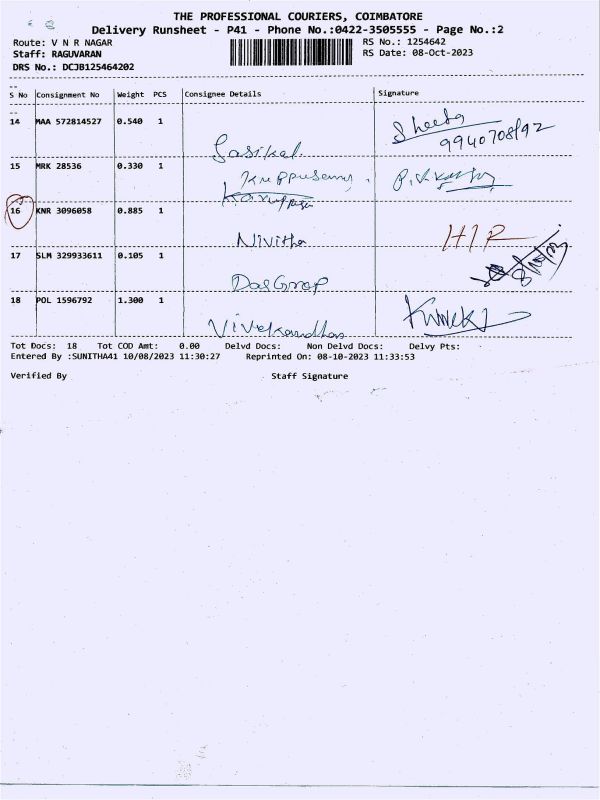 THE PROFESSIONAL COURIERS, COIMBATORE
Delivery Runsheet - P41 - Phone No.:0422-3505555 - Page No.:2
Route: V N R NAGAR
RS No.: 1254642
Staff: RAGUVARAN
RS Date: 08-Oct-2023
DRS No.: DCJB125464202
S No Consignment No Weight PCS Consignee Details Signature
14 MAA 572814527 0.540 1
Sasikal. Sheeta
9940708192
15 MRK 28536 0.330 1
Kuppusamy
16 KNR 3096058 0.885 1
Nivitha
17 SLM 329933611 0.105 1
Das Group
18 POL 1596792 1.300 1
Vivekanandhan
Tot Docs: 18 Tot COD Amt: 0.00 Delvd Docs: Non Delvd Docs: Delvy Pts:
Entered By :SUNITHA41 10/08/2023 11:30:27 Reprinted On: 08-10-2023 11:33:53
Verified By Staff Signature